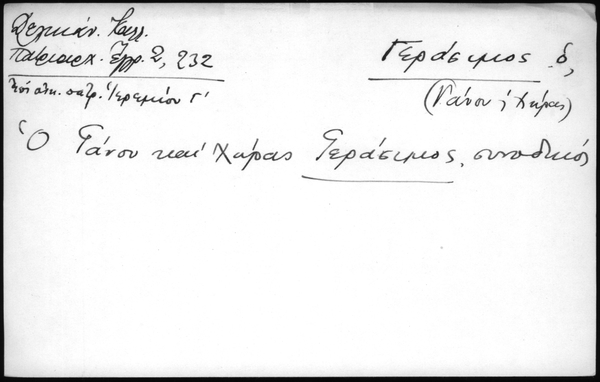 Δελικάν. Καλλ.
Πατριαρχ. Ἔγγρ. 2, 232
Ἐπὶ οἰκ. πατρ. Ἱερεμίου Γ'
Γεράσιμος δ,
(Γάνου ; Χώρας)
Ὁ Γάνου καὶ Χώρας Γεράσιμος, συνοδικός